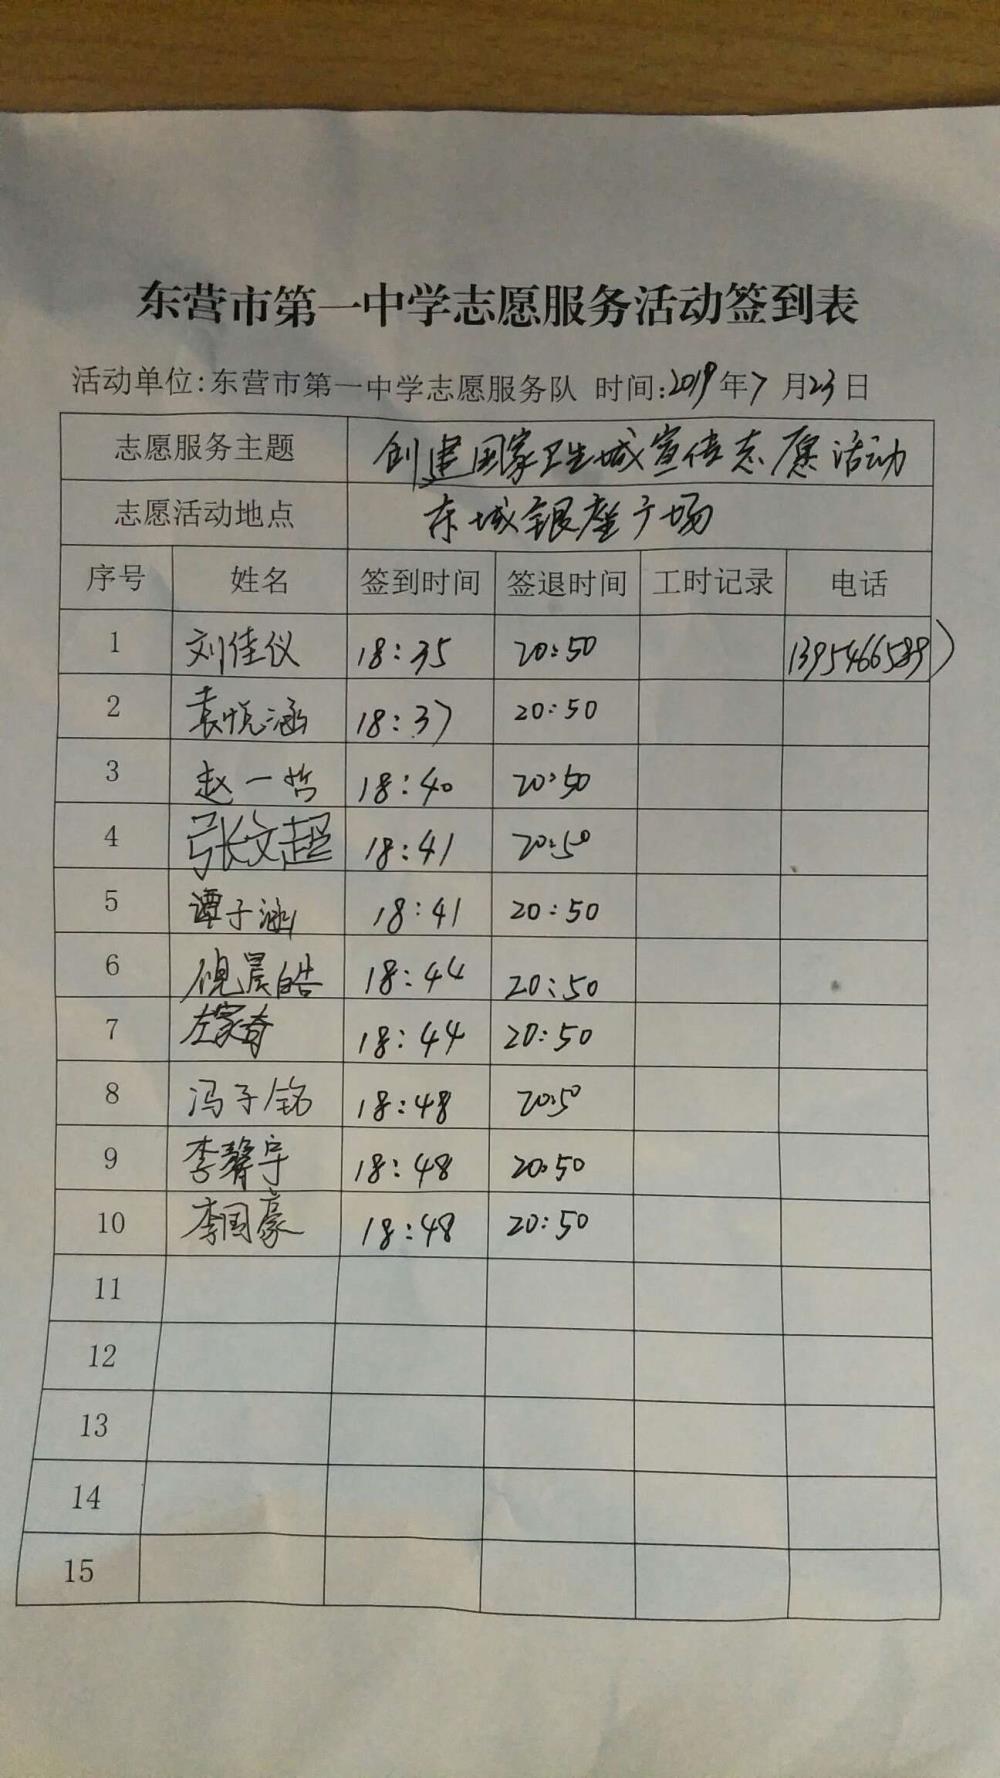 东营市第一中学志愿服务活动签到表
活动单位:东营市第一中学志愿服务队 时间:2019年7月23日
志愿服务主题 创建国家卫生城宣传志愿活动
志愿活动地点 东城银座广场
序号 姓名 签到时间 签退时间 工时记录 电话
1 刘佳仪 18:35 20:50
2 袁悦涵 18:37 20:50
3 赵一哲 18:40 20:50
4 张文超 18:41 20:50
5 谭子涵 18:41 20:50
6 倪晨皓 18:44 20:50
7 左家奇 18:44 20:50
8 冯子铭 18:48 20:50
9 李馨宇 18:48 20:50
10 李国豪 18:48 20:50
11
12
13
14
15